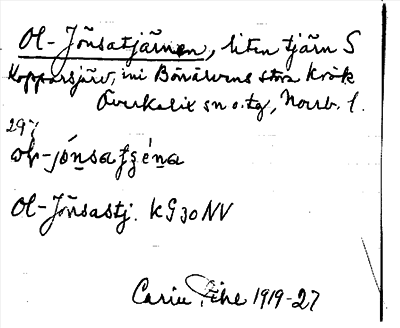 Ol-Jõnsatjärnen, liten tjärn S
Kopparsjärv, ini Börälvens stora krök
Överkalix sn o. tg, Norrb. l.
297
Ol-Jõnsastj. KG 30 NV
Carin Pihl 1919-27